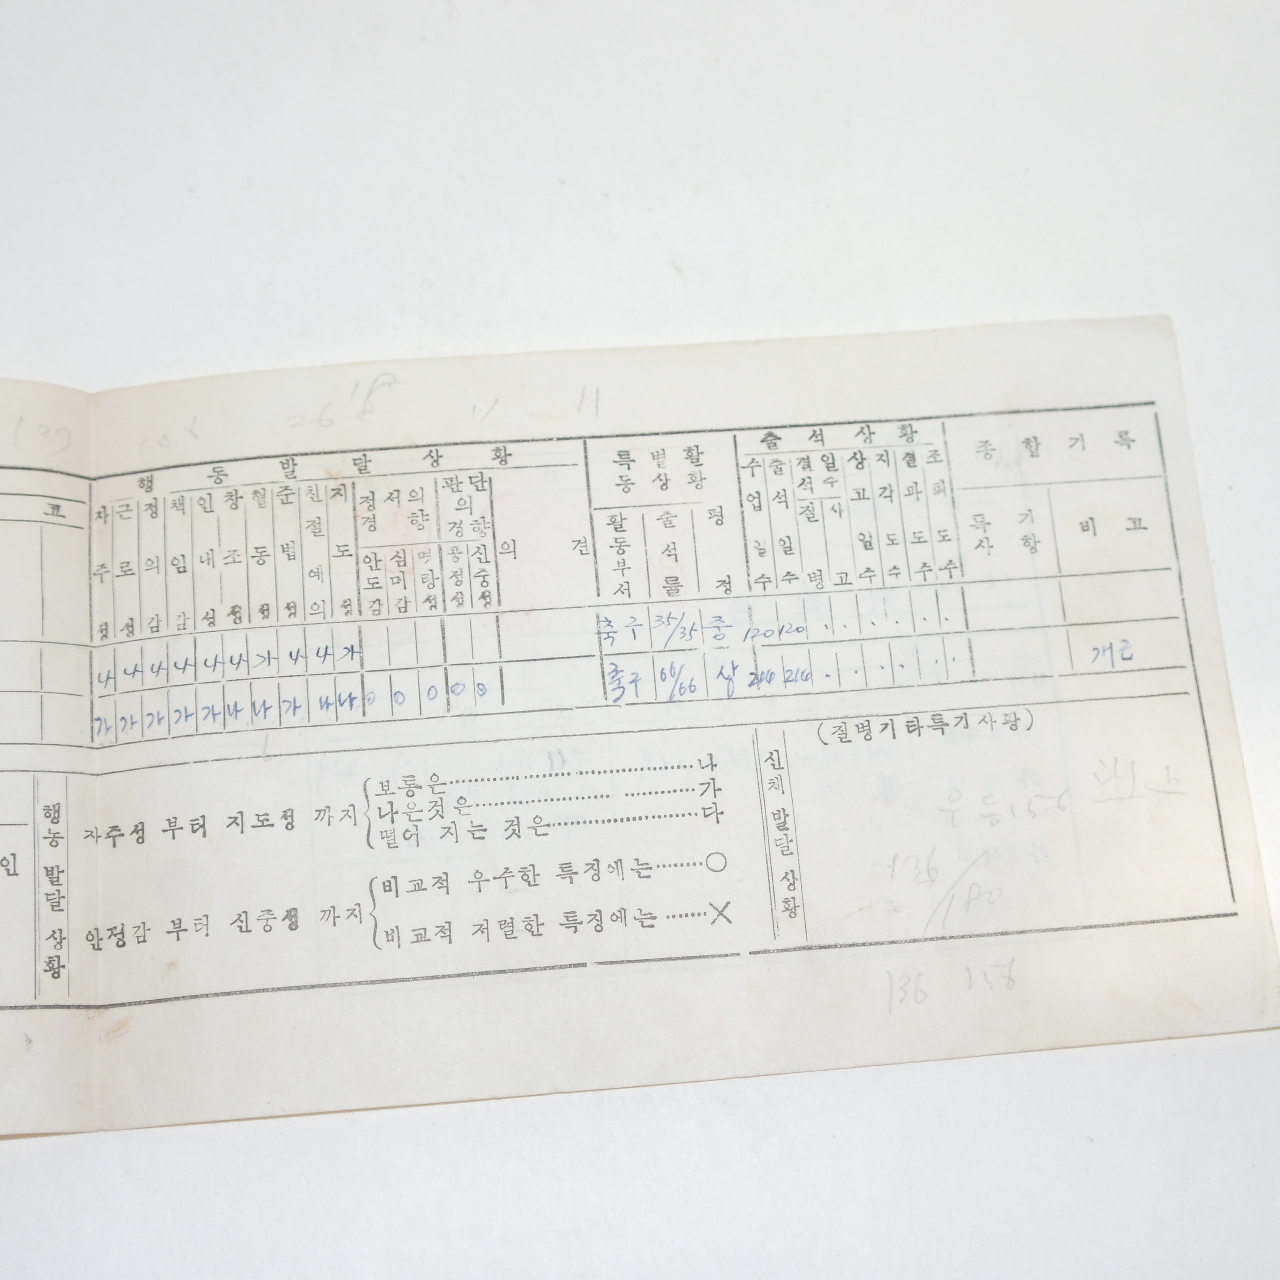 행동발달상황
특별활동상황
출석상황
종합기록
고
자주성
근로성
정의감
책임감
인내성
창조성
협동성
준법성
친절예의
지도성
정서의경향
안도감
심미감
명탕성
판단의경향
공정성
신중성
의견
활동부서
출석률
평정
수업일수
출석일수
결석일수
질병
사고
상고일수
지각도수
결과도수
조퇴도수
특기사항
비고
나 나 나 나 나 나 가 나 나 가
축구 35/35 중 120 120 . . . . . .
가 가 가 가 가 나 나 가 나 나 0 0 0 0 0
축구 66/66 상 214 214 . . . . . . 개근
(질병기타특기사항)
행동발달상황
신체발달상황
인
자주성 부터 지도성 까지
보통은 나
나은것은 가
떨어 지는 것은 다
안정감 부터 신중성 까지
비교적 우수한 특징에는 ○
비교적 저렬한 특징에는 X
우등 156
136
180
136 156